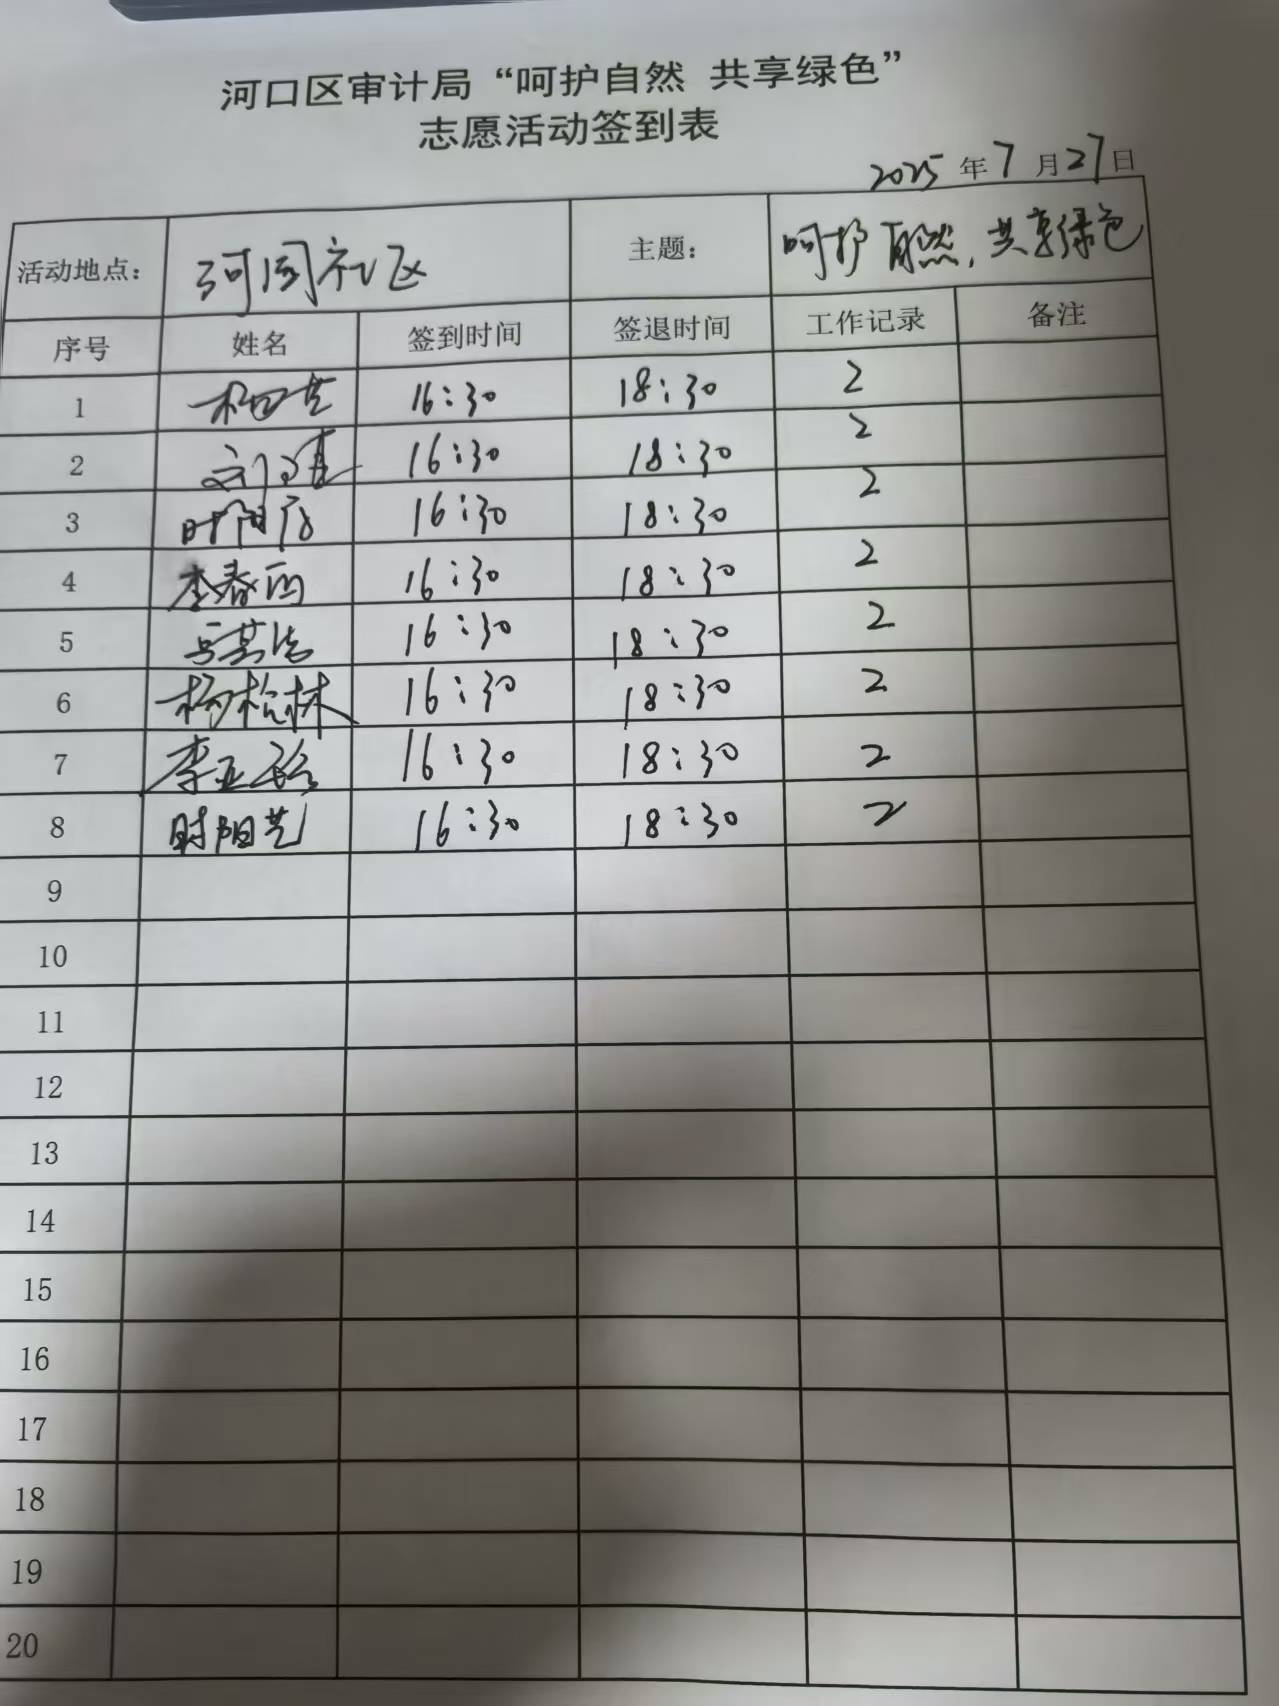 河口区审计局“呵护自然 共享绿色”
志愿活动签到表
2025年7月27日
活动地点： 河 社区 主题： 呵护自然，共享绿色
序号 姓名 签到时间 签退时间 工作记录 备注
1 16:30 18:30 2
2 刘 16:30 18:30 2
3 时阳 16:30 18:30 2
4 李春雨 16:30 18:30 2
5 16:30 18:30 2
6 杨松林 16:30 18:30 2
7 李亚 16:30 18:30 2
8 时阳艺 16:30 18:30 2
9
10
11
12
13
14
15
16
17
18
19
20